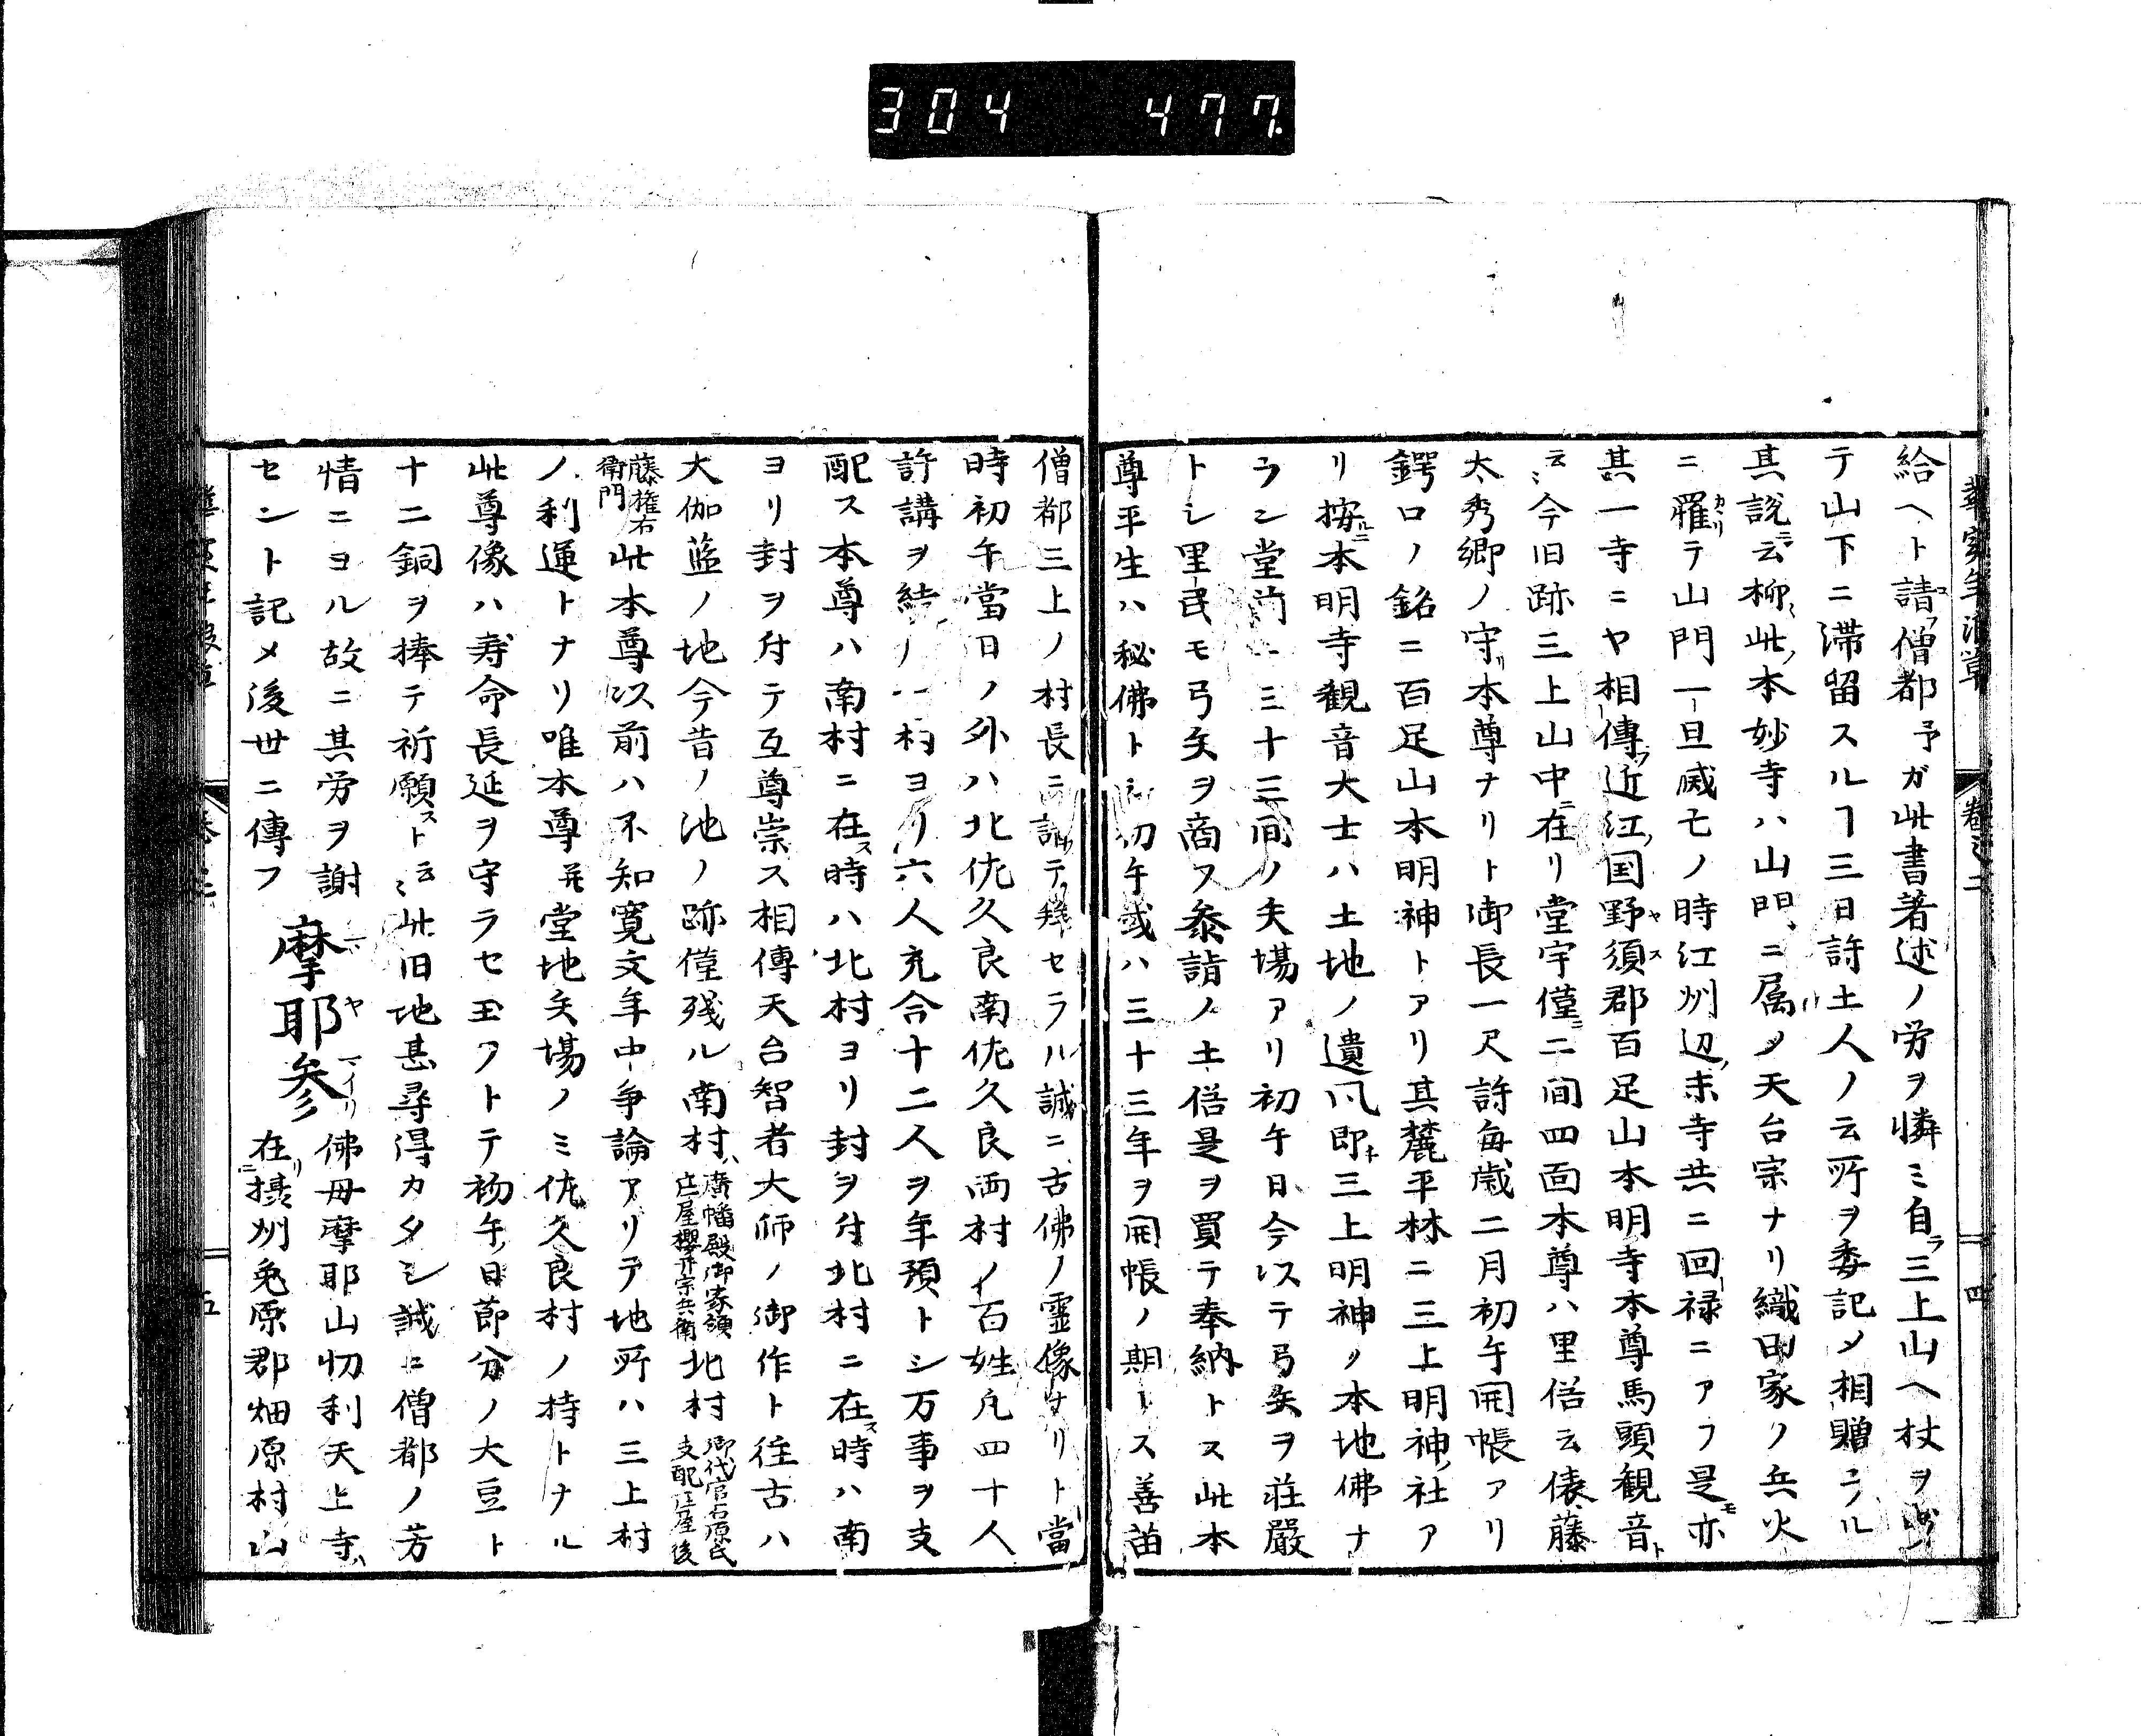 304 477.
華実年浪草 巻之二 四
給ヘト請フ僧都予ガ此書著述ノ労ヲ憐ミ自ラ三上山ヘ杖ヲ
テ山下ニ滞留スルヿ三日許土人ノ云所ヲ委記メ相贈ラル
其説云柳此本妙寺ハ山門ニ属メ天台宗ナリ織田家ノ兵火
ニ罹テ山門一旦滅モノ時江州辺ノ末寺共ニ回禄ニアフ是モ亦
其一寺ニヤ相傳フ近江ノ国野須郡百足山本明寺本尊馬頭観音ト
云今旧跡三上山中ニ在リ堂宇僅ニ二間四面本尊ハ里俗云俵藤
太秀郷ノ守リ本尊ナリト御長一尺許毎歳二月初午開帳アリ
鍔口ノ銘ニ百足山本明神トアリ其麓平林ニ三上明神ノ社ア
リ按ルニ本明寺観音大士ハ土地ノ遺凡即チ三上明神ノ本地佛ナ
ラン堂前ニ三十三間ノ矢場アリ初午ノ日今以テ弓矢ヲ荘嚴
トシ里民モ弓矢ヲ商フ参詣ノ土俗是ヲ買テ奉納トス此本
尊平生ハ秘佛ト云初午或ハ三十三年ヲ開帳ノ期トス善笛
僧都三上ノ村長ニ詣テ拜セラル誠ニ古佛ノ靈像ナリト當
時初午當日ノ外ハ北佐久良南佐久良両村ノ百姓凡四十人
許講ヲ結ノ一村ヨリ六人充合十二人ヲ年預トシ万事ヲ支
配ス本尊ハ南村ニ在ス時ハ北村ヨリ封ヲ付北村ニ在ス時ハ南
ヨリ封ヲ付テ互尊崇ス相傳天台智者大師ノ御作ト往古ハ
大伽藍ノ地今昔ノ池ノ跡僅残ル南村ハ廣幡殿御家領庄屋櫻井宗兵衛北村御代官石原氏支配庄屋後
藤権右衛門此本尊以前ハ不知寛文年中争論アリテ地所ハ三上村
ノ利運トナリ唯本尊并堂地矢場ノミ佐久良村ノ持トナル
此尊像ハ寿命長延ヲ守ラセ玉フトテ初午ノ日節分ノ大豆ト
十二銅ヲ捧テ祈願ストミ云此旧地甚尋得カタシ誠ニ僧都ノ芳
情ニヨル故ニ其労ヲ謝
セント記メ後世ニ傳フ
摩耶参
佛母摩耶山忉利天上寺ハ
在リ摂州兎原郡畑原村山
五